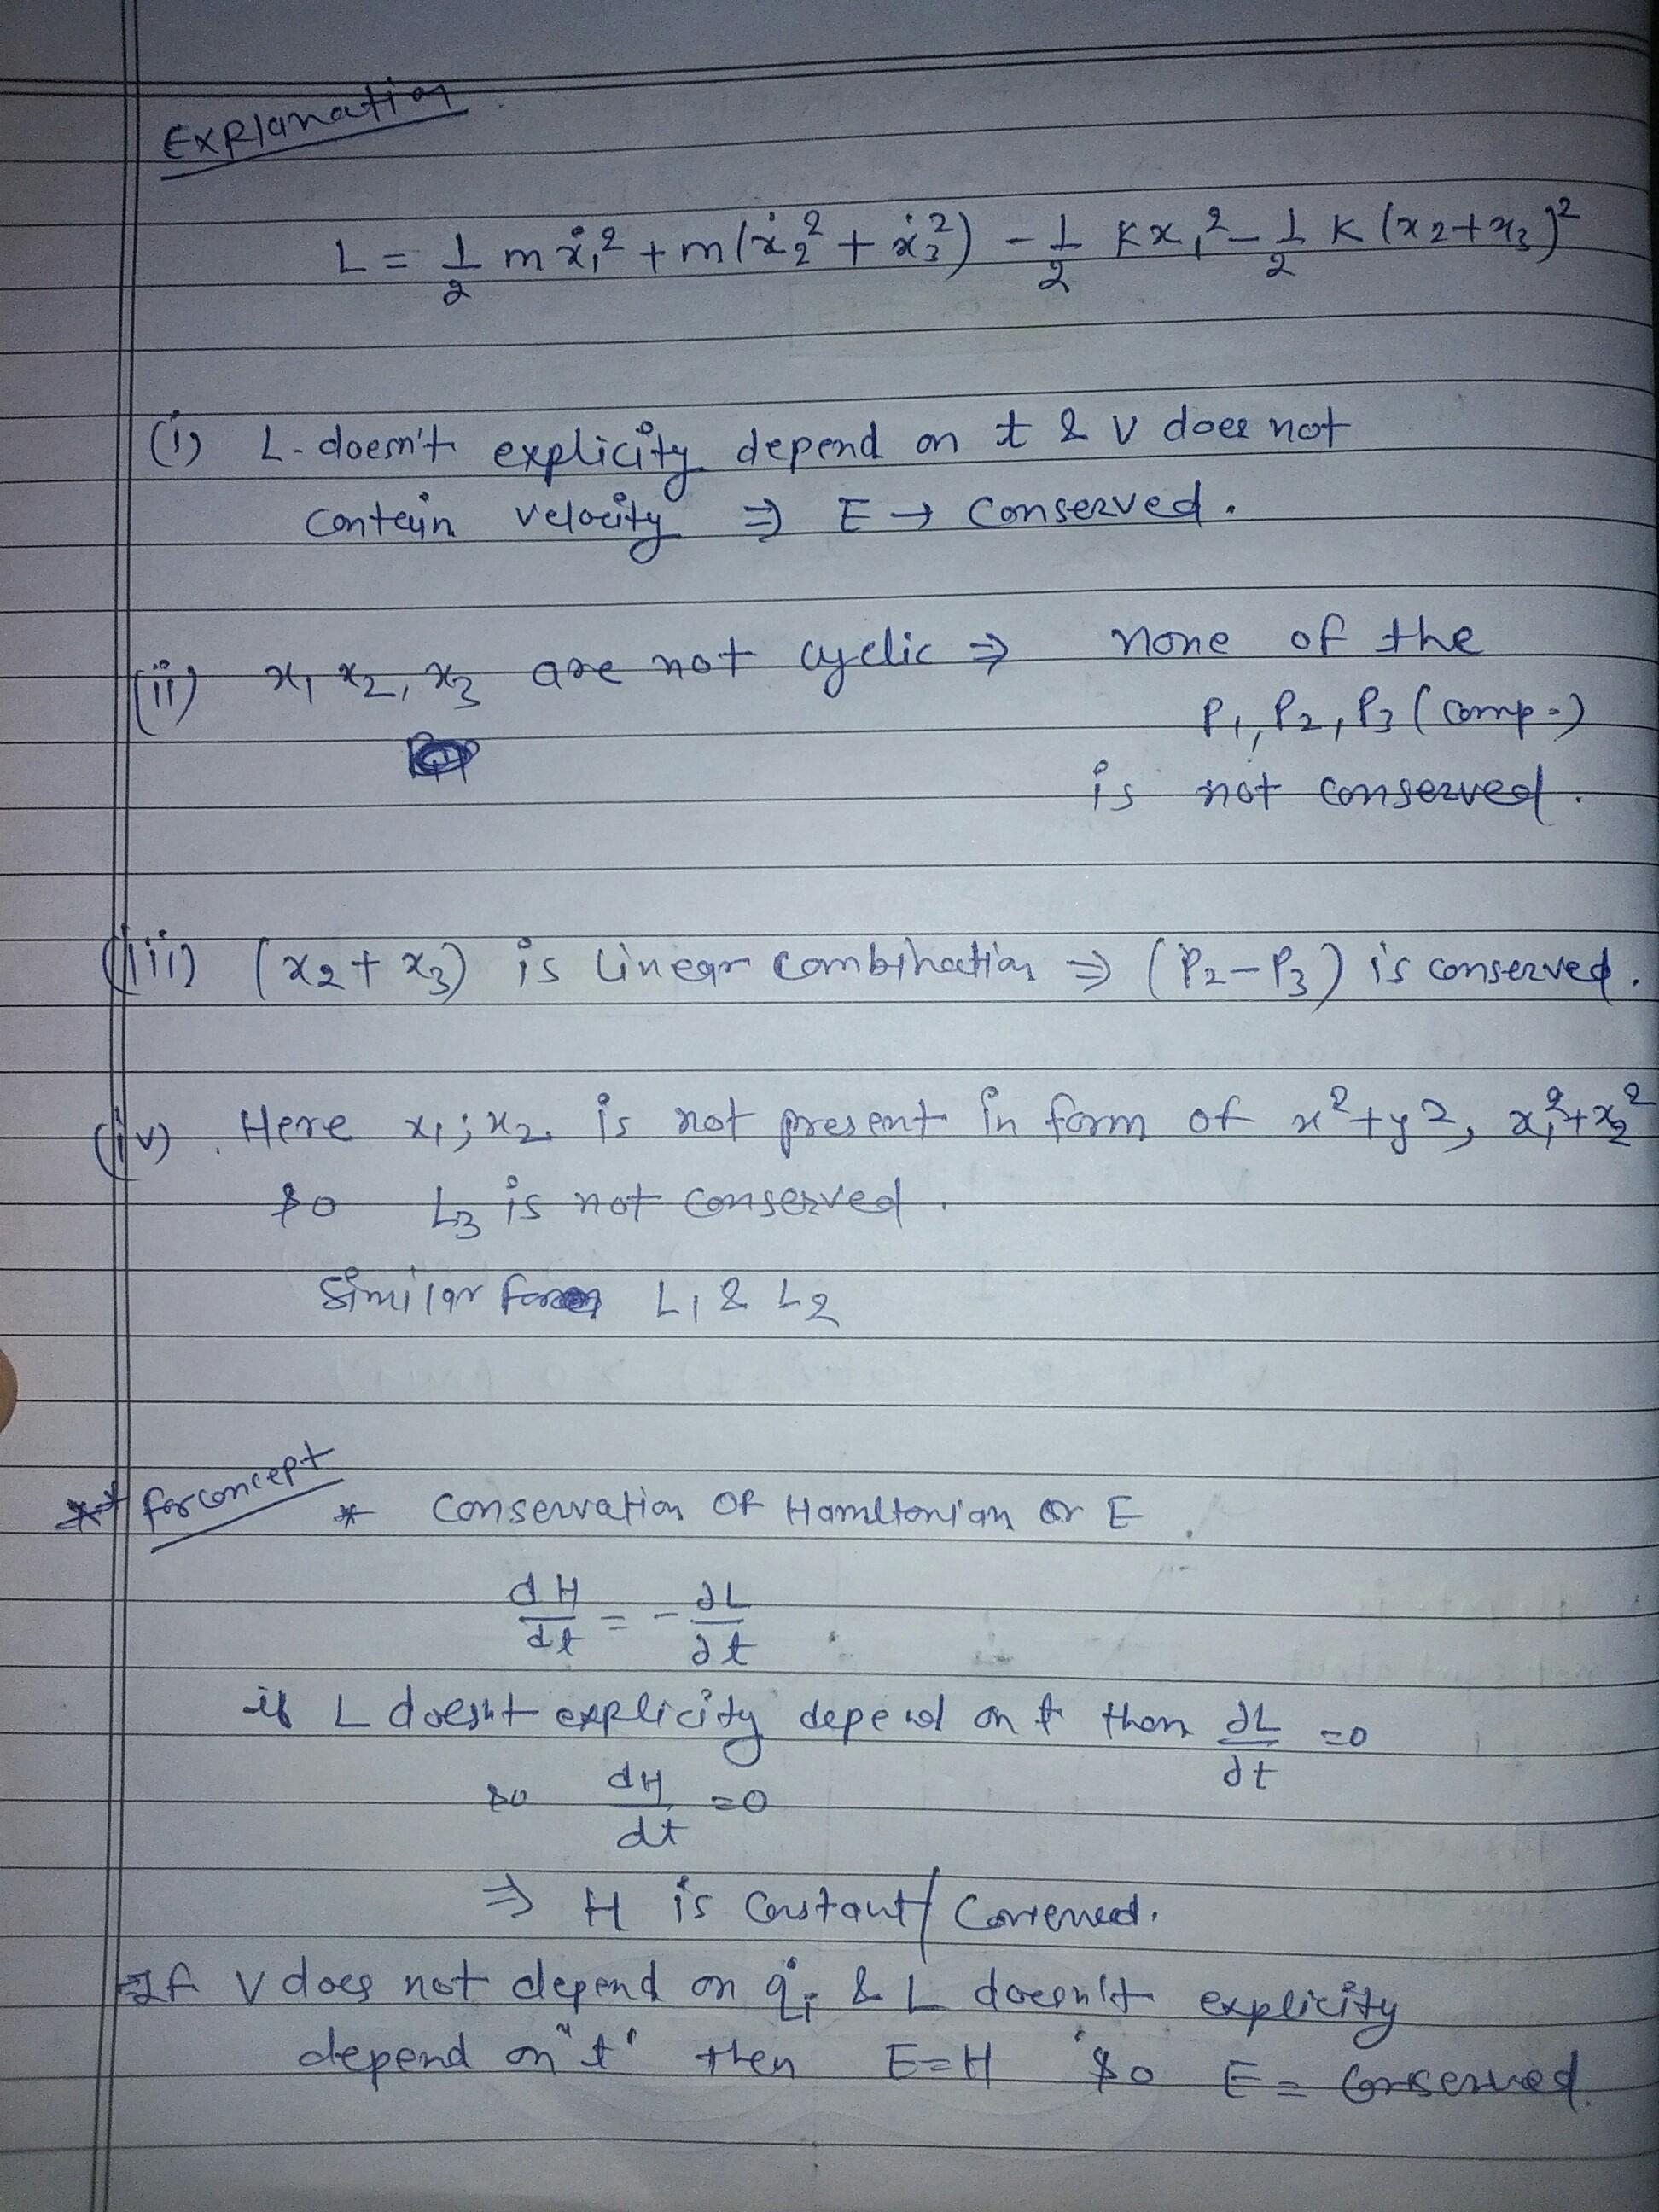 Explanation
L = 1/2 mẋ₁² + m(ẋ₂² + ẋ₃²) - 1/2 Kx₁² - 1/2 K(x₂+x₃)²
(i) L-doesn't explicity depend on t & V does not
contain velocity ⇒ E → Conserved.
(ii) x₁ x₂, x₃ are not cyclic ⇒ none of the
P₁, P₂, P₃ (comp.)
is not conserved.
(iii) (x₂ + x₃) is linear combination ⇒ (P₂-P₃) is conserved.
(iv) Here x₁; x₂ is not present in form of x²+y², x₁²+x₂²
so L₃ is not conserved.
Similar for L₁ & L₂
** for concept
* Conservation of Hamiltonian or E.
dH/dt = -∂L/∂t
if L doesn't explicity depend on t then ∂L/∂t = 0
so dH/dt = 0
⇒ H is Constant/Conserved.
If V does not depend on q̇ᵢ & L doesn't explicity
depend on "t" then E=H so E = Conserved.